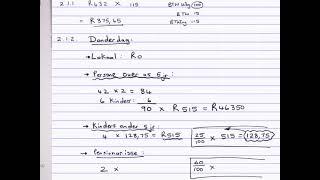 2.1.1 R632 x 115
= R375,65
BTW 115
2.1.2. Donderdag:
→ Lokaal: R0
→ Persone over as 5 jr:
42 x 2 = 84
6 Kinders: 6
90 x R515 = R46350
→ Kinders onder 5 jr:
4 x 128,75 = R515
25/100 x 515 = 128,75
→ Pensionarisse:
2 x
60/100 x